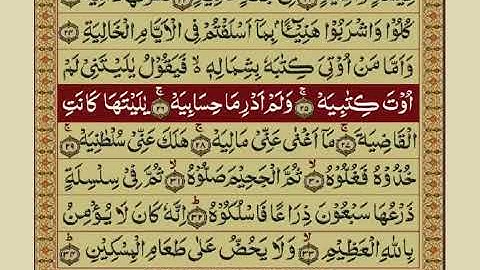 كُلُوْا وَاشْرَبُوْا هَنِيْٓـًٔۢا بِمَاۤ اَسْلَفْتُمْ فِى الْاَيَّامِ الْخَالِيَةِ ﴿۲۴﴾
وَاَمَّا مَنْ اُوْتِىَ كِتٰبَهٗ بِشِمَالِهٖ ۙ فَيَقُوْلُ يٰلَيْتَنِىْ لَمْ
اُوْتَ كِتٰبِيَهْ ۚ ﴿۲۵﴾ وَلَمْ اَدْرِ مَا حِسَابِيَهْ ۚ ﴿۲۶﴾ يٰلَيْتَهَا كَانَتِ
الْقَاضِيَةَ ۚ ﴿۲۷﴾ مَاۤ اَغْنٰى عَنِّىْ مَالِيَهْ ۚ ﴿۲۸﴾ هَلَكَ عَنِّىْ سُلْطٰنِيَهْ ۚ ﴿۲۹﴾
خُذُوْهُ فَغُلُّوْهُ ۙ ﴿۳۰﴾ ثُمَّ الْجَحِيْمَ صَلُّوْهُ ۙ ﴿۳۱﴾ ثُمَّ فِىْ سِلْسِلَةٍ
ذَرْعُهَا سَبْعُوْنَ ذِرَاعًا فَاسْلُكُوْهُ ؕ ﴿۳۲﴾ اِنَّهٗ كَانَ لَا يُؤْمِنُ
بِاللّٰهِ الْعَظِيْمِ ۙ ﴿۳۳﴾ وَلَا يَحُضُّ عَلٰى طَعَامِ الْمِسْكِيْنِ ؕ ﴿۳۴﴾